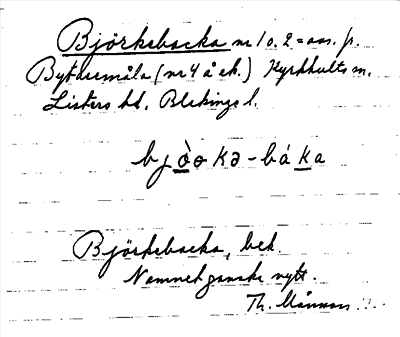 Björkebacka nr 1 o. 2 = avs. p.
Bytaremåla (nr 4 å ek.) Kyrkhults sn.
Listers hd. Blekinge l.
bjö̀ɵkə-bákа
Björkebacka, bek.
Namnet ganska nytt.
Th. Månsson